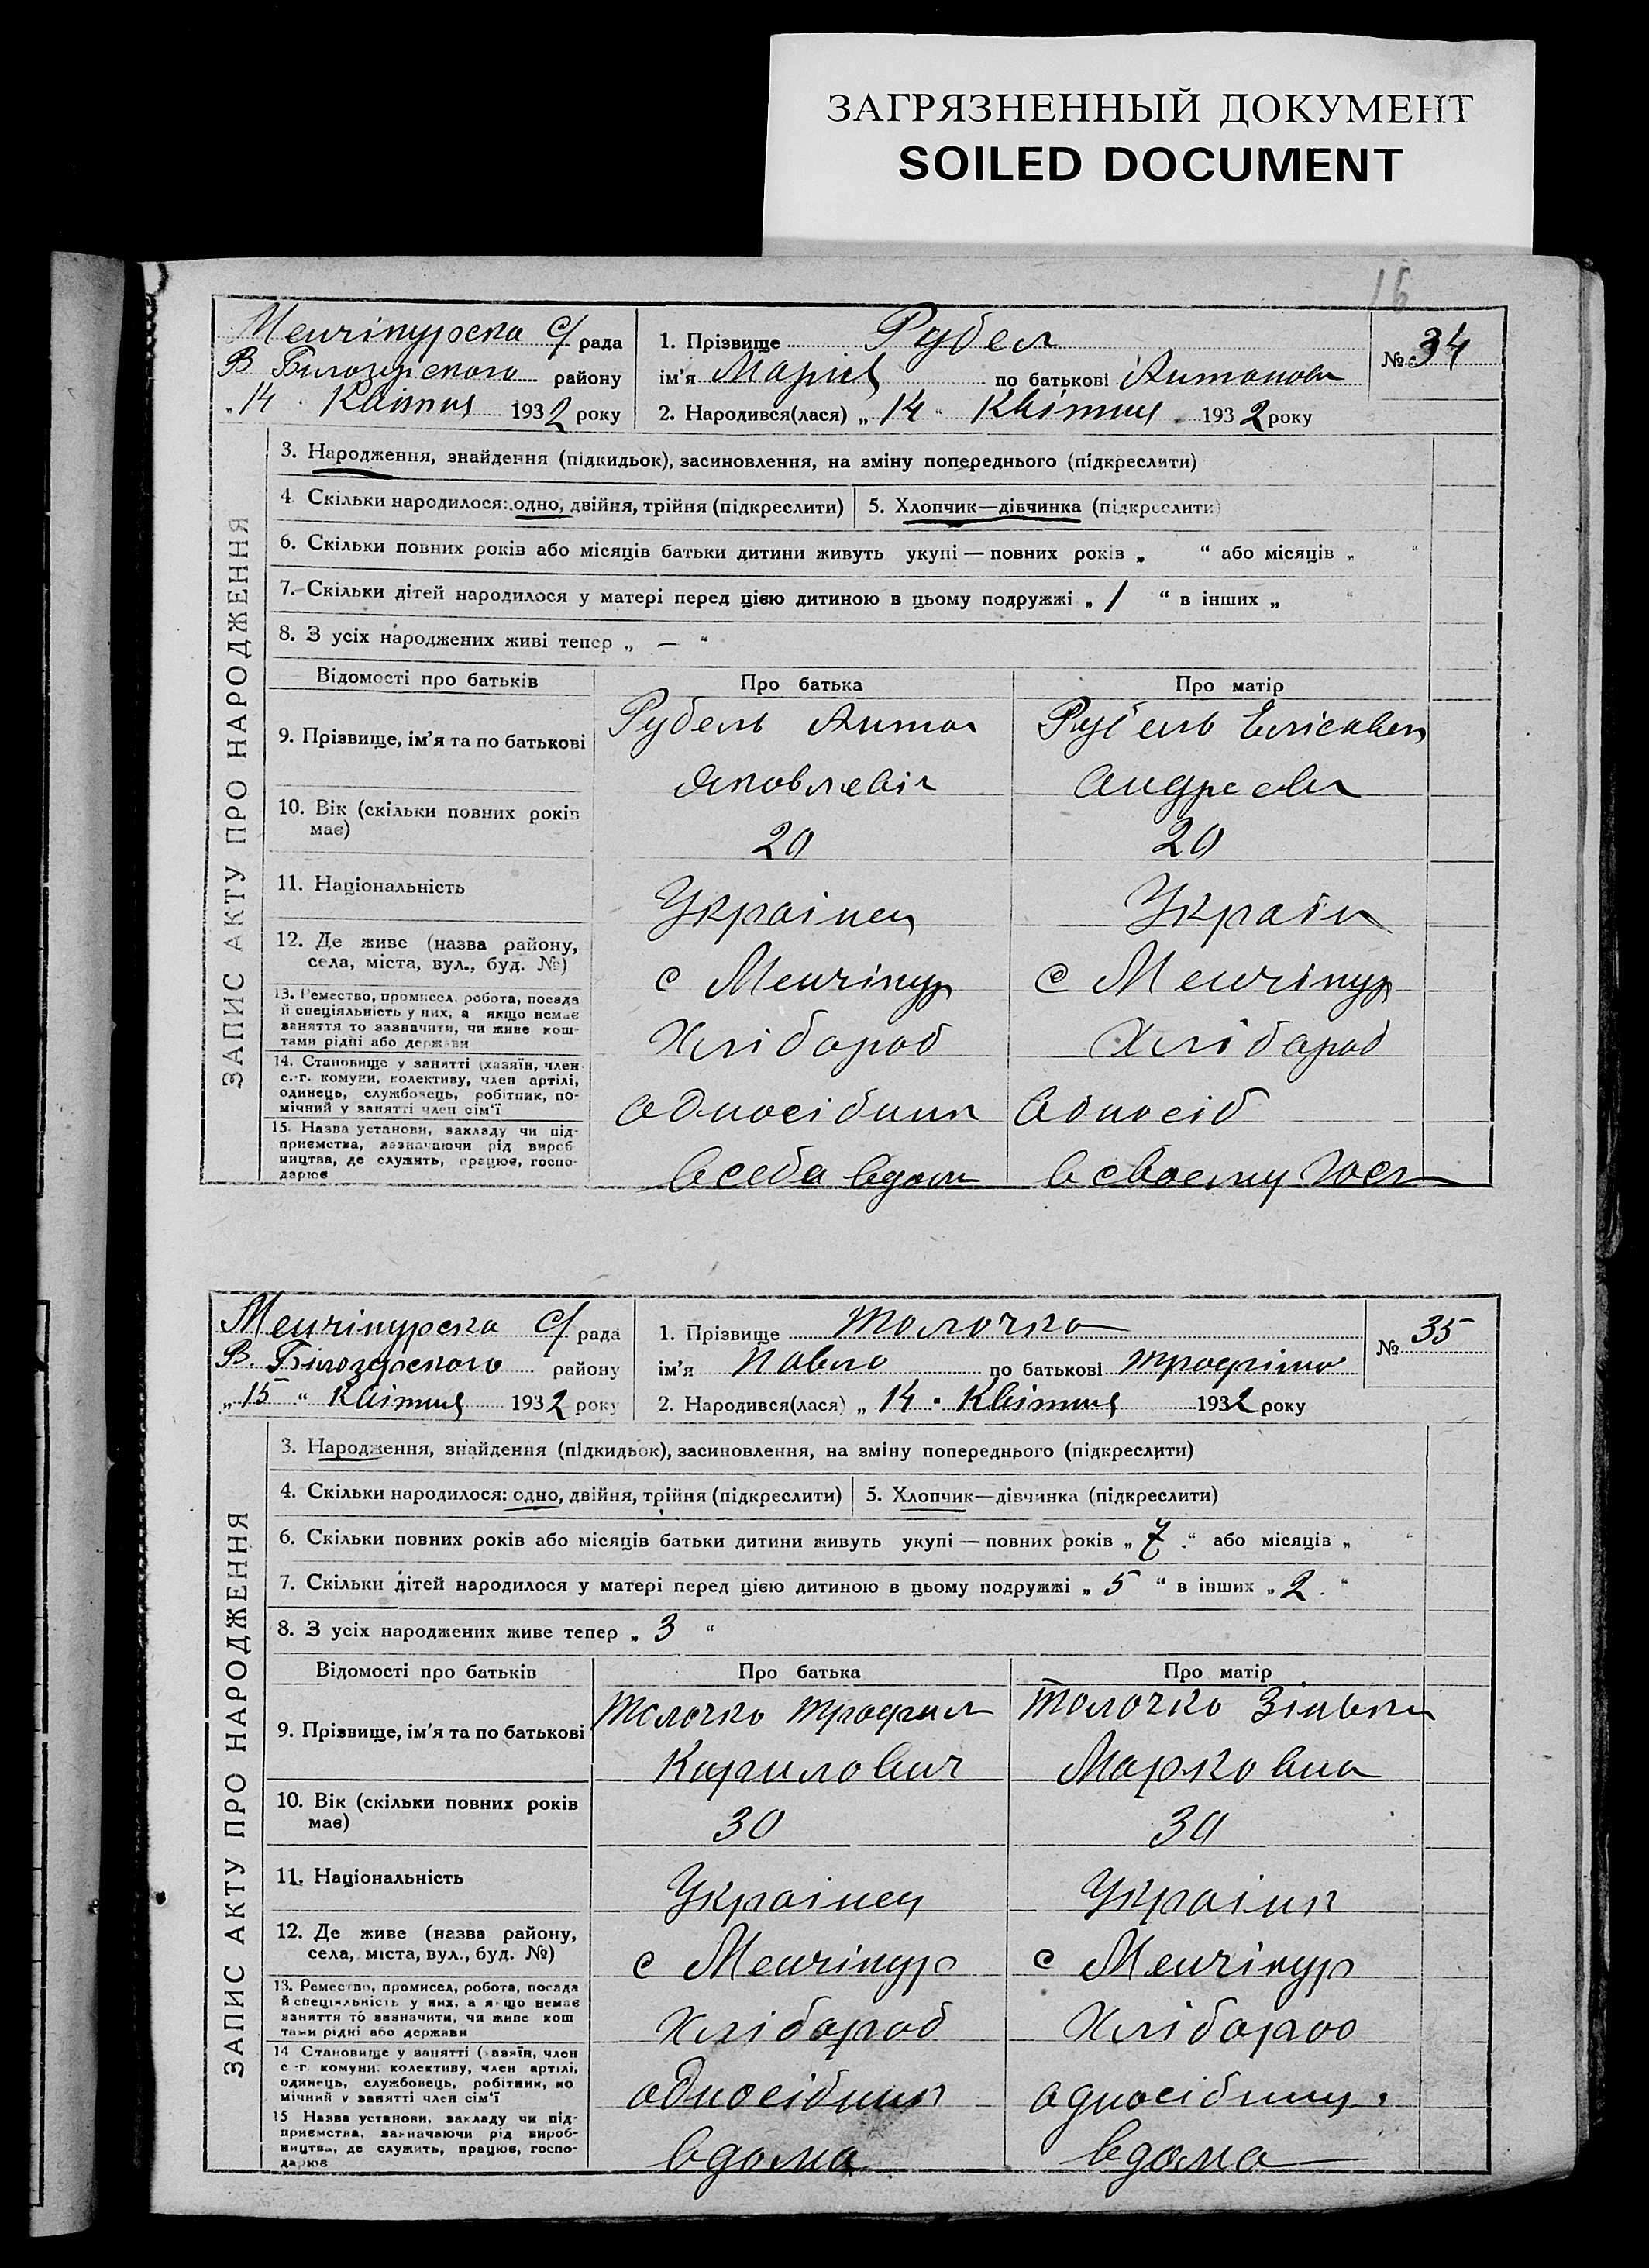 ЗАГРЯЗНЕННЫЙ ДОКУМЕНТ
SOILED DOCUMENT
16
ЗАПИС АКТУ ПРО НАРОДЖЕННЯ
Менчікурска с/рада
В Білозерского району
„14 „ Квітня 1932 року
1. Прізвище Рубел
№ 34
ім’я Марія по батькові Антонов
2. Народився(лася) „14“ Квітня 1932 року
3. Народження, знайдення (підкидьок), засиновлення, на зміну попереднього (підкреслити)
4. Скільки народилося: одно, двійня, трійня (підкреслити) 5. Хлопчик—дівчинка (підкреслити)
6. Скільки повних років або місяців батьки дитини живуть укупі — повних років „ “ або місяців „ “
7. Скільки дітей народилося у матері перед цією дитиною в цьому подружжі „ 1 “ в інших „ “
8. З усіх народжених живі тепер „ — “
Відомості про батьків Про батька Про матір
9. Прізвище, ім’я та по батькові Рубель Антон Рубель Елісавет
Яковлевіч Андреевн
10. Вік (скільки повних років
має) 20 20
11. Національність Украінец Украін
12. Де живе (назва району,
села, міста, вул., буд. №) с Менчікур с Менчікур
13. Ремество, промисел, робота, посада
й спеціяльність у них, а якщо немає
заняття то зазначити, чи живе кош-
тами рідні або держави Хлібороб Хлібороб
14. Становище у занятті (хазяїн, член
с.-г. комуни, колективу, член артілі,
одинець, службовець, робітник, по-
мічний у занятті член сім’ї односібник односіб
15. Назва установи, закладу чи під-
приємства, зазначаючи рід вироб
ництва, де служить, працює, госпо-
дарює в себа вдом в своему гос
ЗАПИС АКТУ ПРО НАРОДЖЕННЯ
Менчікурска с/рада
В Білозерского району
„15“ Квітня 1932 року
1. Прізвище Толочко
№ 35
ім’я Павло по батькові Трофімов
2. Народився(лася) „14 „ Квітня 1932 року
3. Народження, знайдення (підкидьок), засиновлення, на зміну попереднього (підкреслити)
4. Скільки народилося: одно, двійня, трійня (підкреслити) 5. Хлопчик—дівчинка (підкреслити)
6. Скільки повних років або місяців батьки дитини живуть укупі — повних років „ 7 “ або місяців „ “
7. Скільки дітей народилося у матері перед цією дитиною в цьому подружжі „ 5 “ в інших „ 2 “
8. З усіх народжених живе тепер „ 3 “
Відомості про батьків Про батька Про матір
9. Прізвище, ім’я та по батькові Толочко Трофим Толочко
Кирилович Марковна
10. Вік (скільки повних років
має) 30 30
11. Національність Украінец Украінк
12. Де живе (назва району,
села, міста, вул., буд. №) с Менчікур с Менчікур
13. Ремество, промисел, робота, посада
й спеціяльність у них, а якщо немає
заняття то зазначити, чи живе кош
тами рідні або держави Хлібороб Хлібороб
14 Становище у занятті (хазяїн, член
с.-г. комуни, колективу, член артілі,
одинець, службовець, робітник, по
мічний у занятті член сім’ї односібник односібниц
15 Назва установи, закладу чи під-
приємства, зазначаючи рід вироб-
ництва, де служить, працює, госпо-
дарює вдома вдома